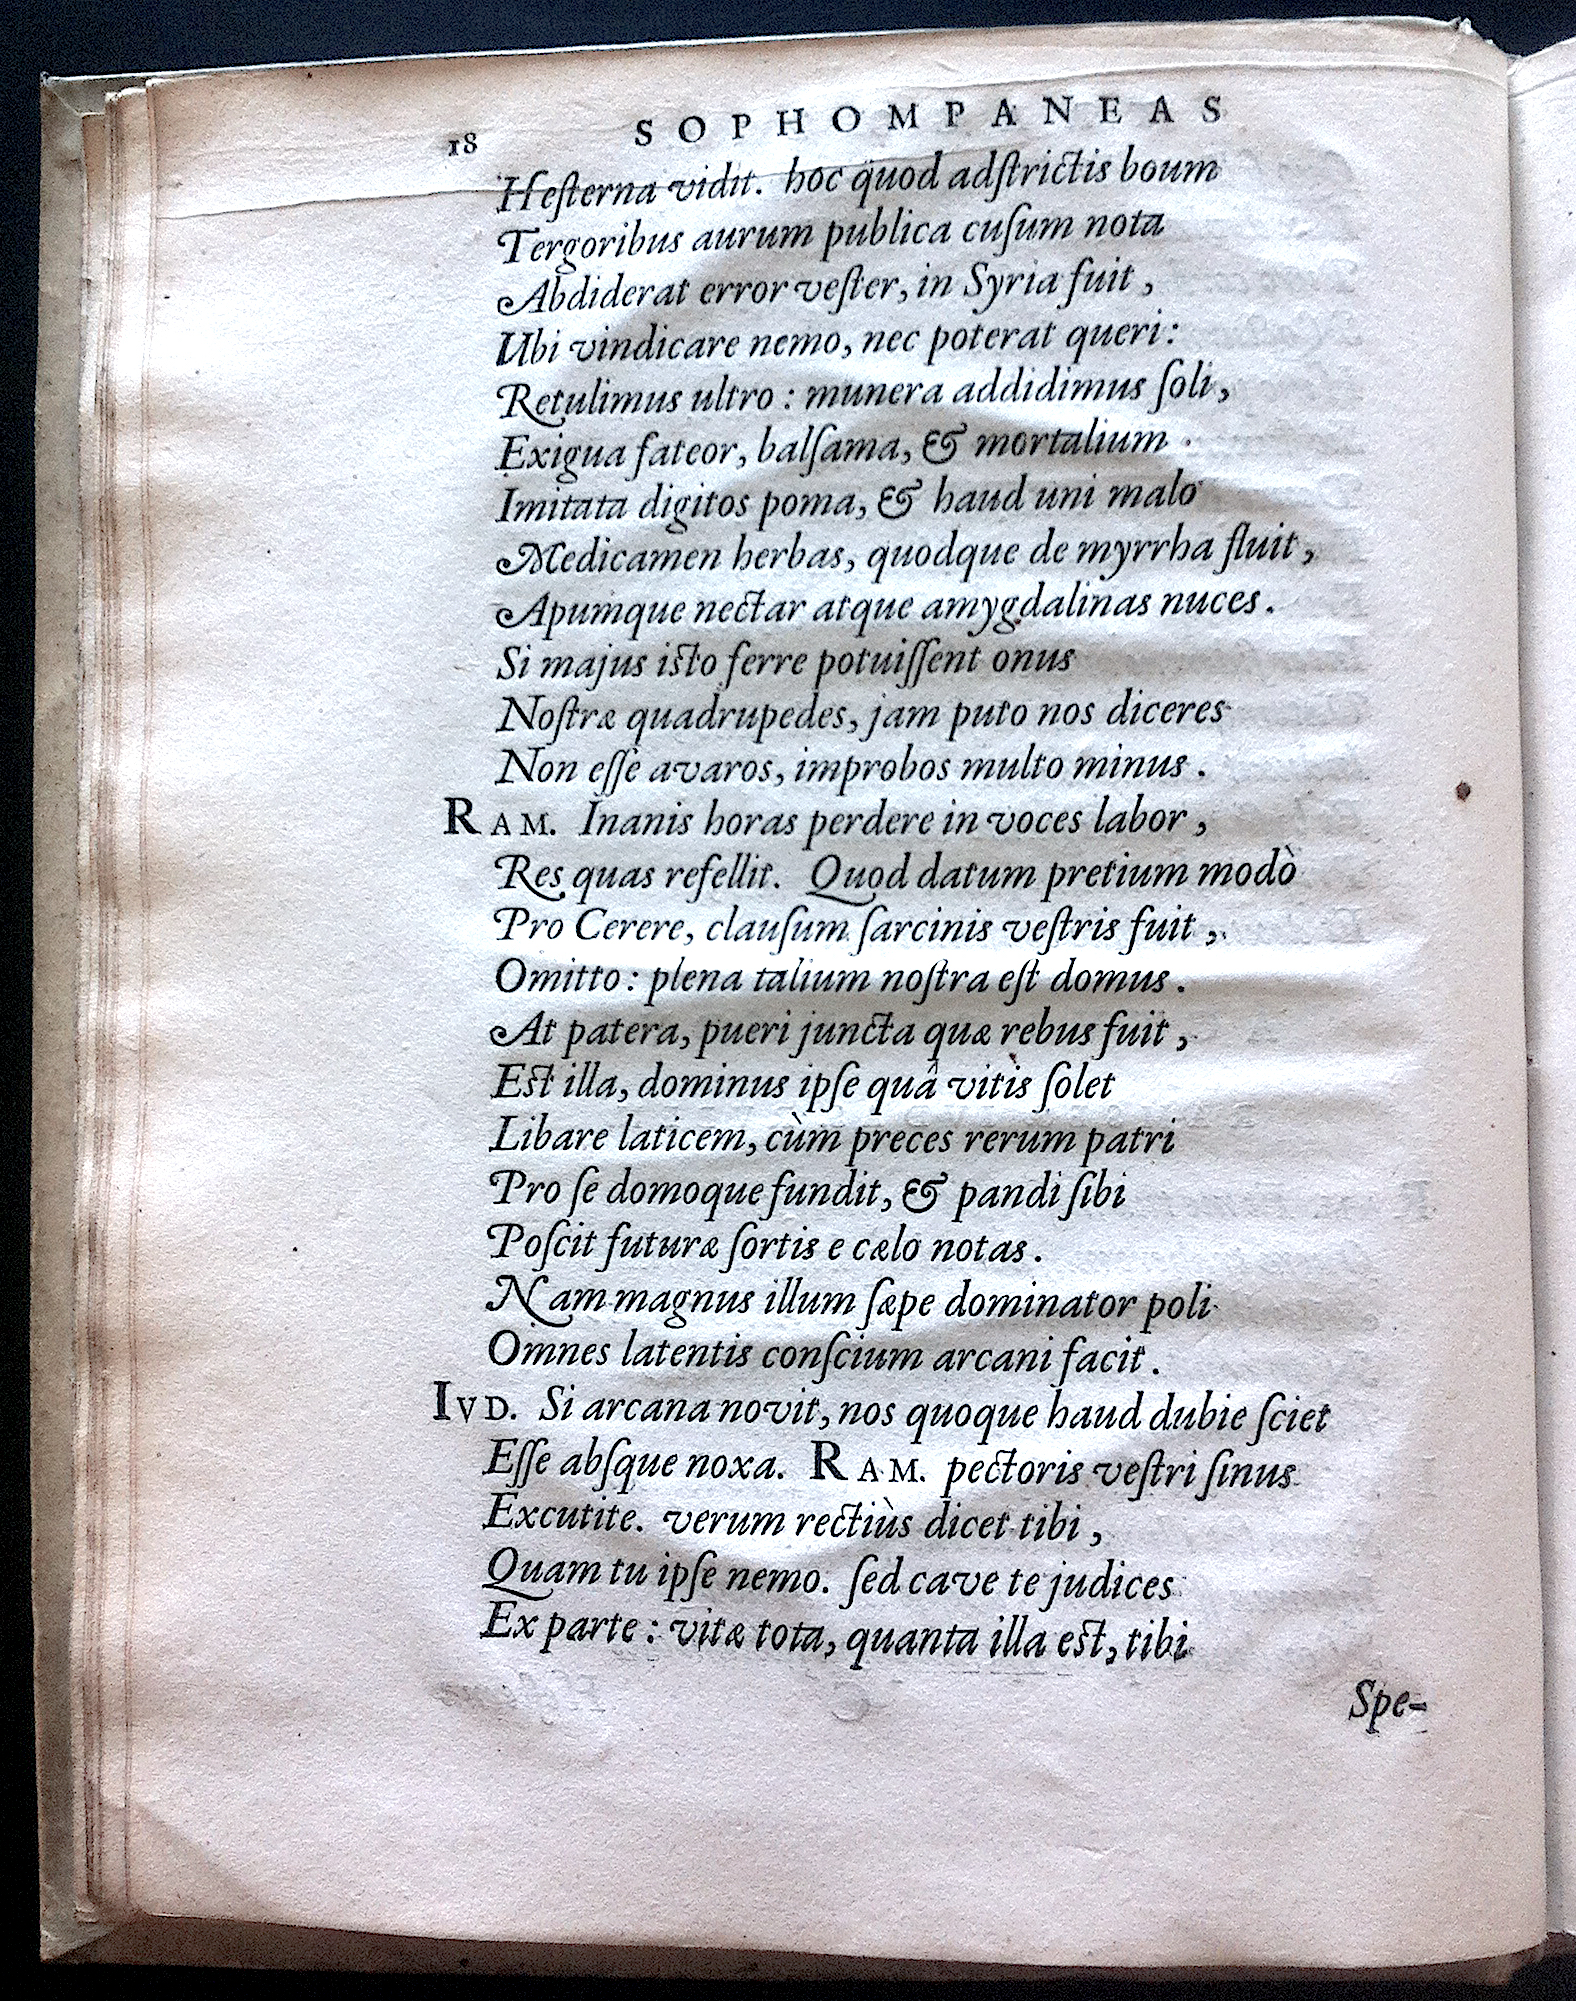 18 SOPHOMPANEAS
Hesterna vidit. hoc quod adſtrictis boum
Tergoribus aurum publica cuſum nota
Abdiderat error veſter, in Syria fuit,
Ubi vindicare nemo, nec poterat queri:
Retulimus ultro: munera addidimus ſoli,
Exigua fateor, balſama, & mortalium
Imitata digitos poma, & haud uni malo
Medicamen herbas, quodque de myrrha fluit,
Apumque nectar atque amygdalinas nuces.
Si majus isto ferre potuiſſent onus
Noſtræ quadrupedes, jam puto nos diceres
Non eſſe avaros, improbos multo minus.
RAM. Inanis horas perdere in voces labor,
Res quas refellit. Quod datum pretium modò
Pro Cerere, clauſum ſarcinis veſtris fuit,
Omitto: plena talium noſtra eſt domus.
At patera, pueri juncta quæ rebus fuit,
Est illa, dominus ipſe quâ vitis ſolet
Libare laticem, cùm preces rerum patri
Pro ſe domoque fundit, & pandi ſibi
Poſcit futuræ ſortis e cælo notas.
Nam magnus illum ſæpe dominator poli
Omnes latentis conſcium arcani facit.
IVD. Si arcana novit, nos quoque haud dubie ſciet
Eſſe abſque noxa. RAM. pectoris veſtri ſinus
Excutite. verum rectiùs dicet tibi,
Quam tu ipſe nemo. ſed cave te judices
Ex parte: vitæ tota, quanta illa est, tibi
Spe-